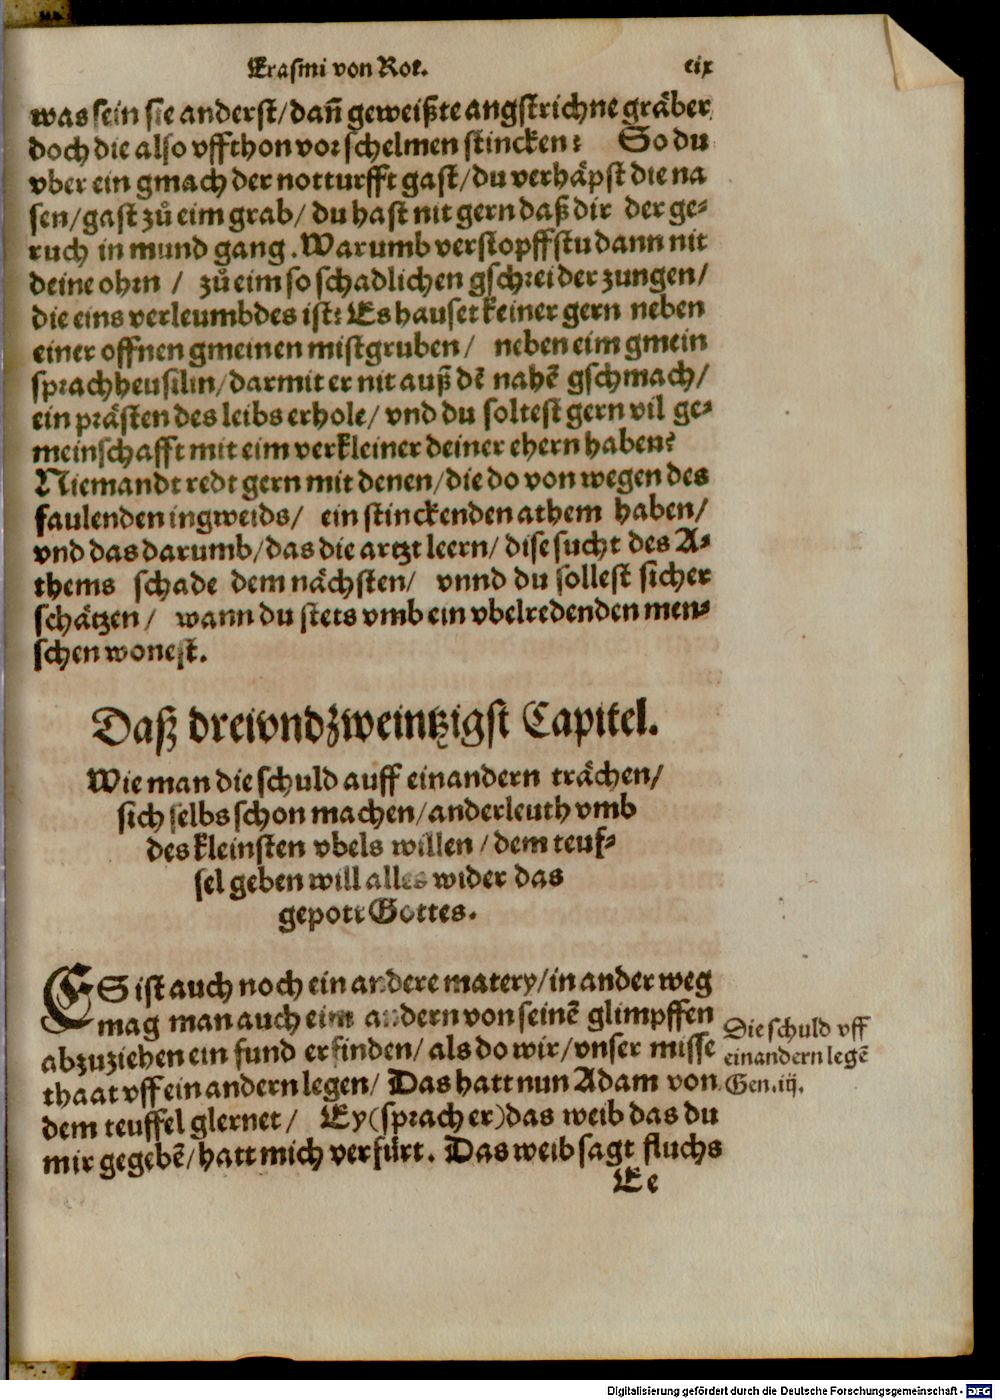 Erasmi von Rot. cix
was sein sie anderst/dañ geweißte angstrichne gräber
doch die also vffthon vor schelmen stincken? So du
vber ein gmach der notturfft gast/du verhäpst die na
sen/gast zů eim grab/du hast nit gern daß dir der ge-
ruch in mund gang. Warumb verstopffstu dann nit
deine ohrn / zů eim so schadlichen gschrei der zungen/
die eins verleumbdes ist? Es hauset keiner gern neben
einer offnen gmeinen mistgruben/ neben eim gmein
sprachheusilin/darmit er nit auß dē nahē gschmach/
ein prästen des leibs erhole/vnd du soltest gern vil ge-
meinschafft mit eim verkleiner deiner ehern haben?
Niemandt redt gern mit denen/die do von wegen des
faulenden ingweids/ ein stinckenden athem haben/
vnd das darumb/das die artzt leern/dise sucht des A-
thems schade dem nächsten/ vnnd du sollest sicher
schätzen/ wann du stets vmb ein vbelredenden men-
schen wonest.
Daß dreivndzweintzigst Capitel.
Wie man die schuld auff einandern trächen/
sich selbs schon machen/anderleuth vmb
des kleinsten vbels willen/dem teuf-
sel geben will alles wider das
gepott Gottes.
ES ist auch noch ein andere matery/in ander weg
mag man auch eim andern von seinē glimpffen
abzuziehen ein fund erfinden/als do wir/vnser misse
thaat vff ein andern legen/ Das hatt nun Adam von
dem teuffel glernet/ Ey(sprach er)das weib das du
mir gegebē/hatt mich verfürt. Das weib sagt fluchs
Ee
Die schuld vff
einandern legē
Gen.iij.
Digitalisierung gefördert durch die Deutsche Forschungsgemeinschaft - DFG